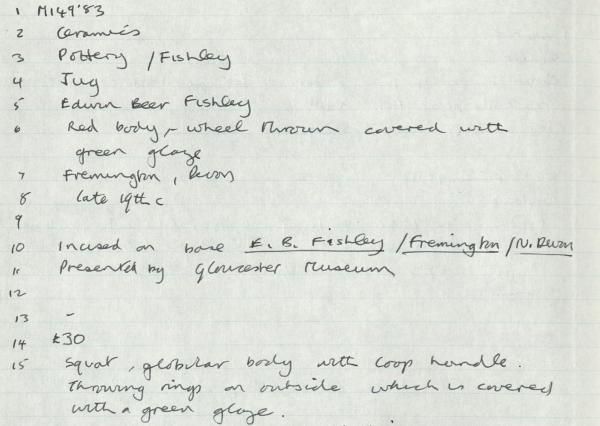 1 M149'83
2 Ceramics
3 Pottery / Fishley
4 Jug
5 Edwin Beer Fishley
6 Red body, - wheel thrown covered with
green glaze
7 Fremington, Devon
8 late 19th c
9
10 Incused on base E. B. Fishley / Fremington / N. Devon
11 Presented by Gloucester Museum
12
13 -
14 £30
15 Squat, globular body with loop handle.
Throwing rings on outside which is covered
with a green glaze.